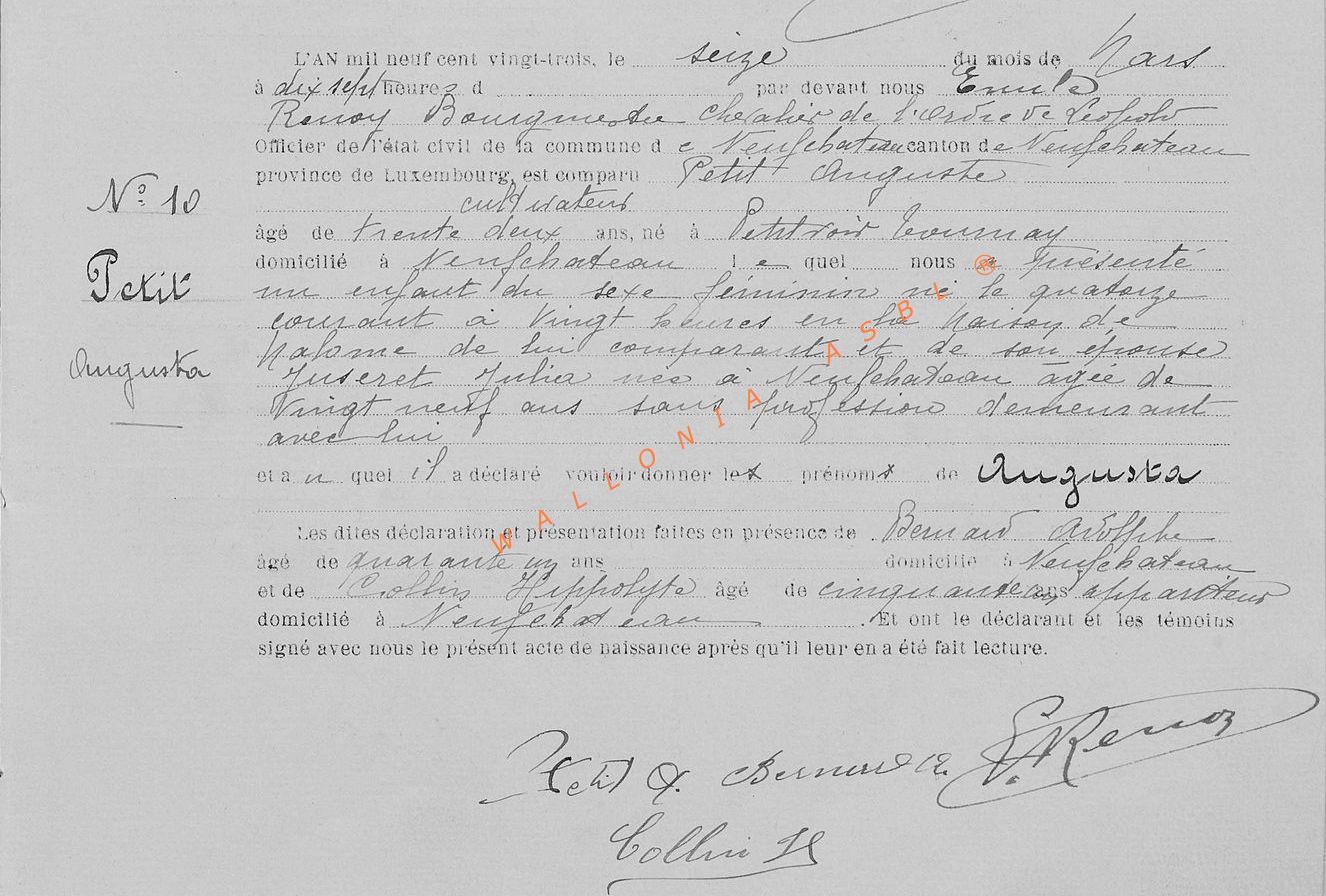 L'AN mil neuf cent vingt-trois, le seize du mois de Mars
à dix sept heures d par devant nous Emile
Renoy Bourgmestre chevalier de l'Ordre de Léopold
Officier de l'état civil de la commune d e Neufchateau canton de Neufchateau
province de Luxembourg, est comparu Petit Auguste
cultivateur
âgé de trente deux ans, né à Petitvoir Tournay
domicilié à Neufchateau l e quel nous a présenté
un enfant du sexe féminin né le quatorze
courant à vingt heures en la maison de
de lui comparant et de son épouse
Juseret Julia née à Neufchateau agée de
Vingt neuf ans sans profession demeurant
avec lui
et a u quel il a déclaré vouloir donner les prénoms de Augusta
Les dites déclaration et présentation faites en présence de Bernard Adolphe
âgé de quarante un ans domicilié à Neufchateau
et de Collin Hippolyte âgé de cinquante ans appariteur
domicilié à Neufchateau . Et ont le déclarant et les témoins
signé avec nous le présent acte de naissance après qu'il leur en a été fait lecture.
N° 10
Petit
Augusta
WALLONIA ASBL ®
Petit A. Bernard A. E. Renoy
Collin H